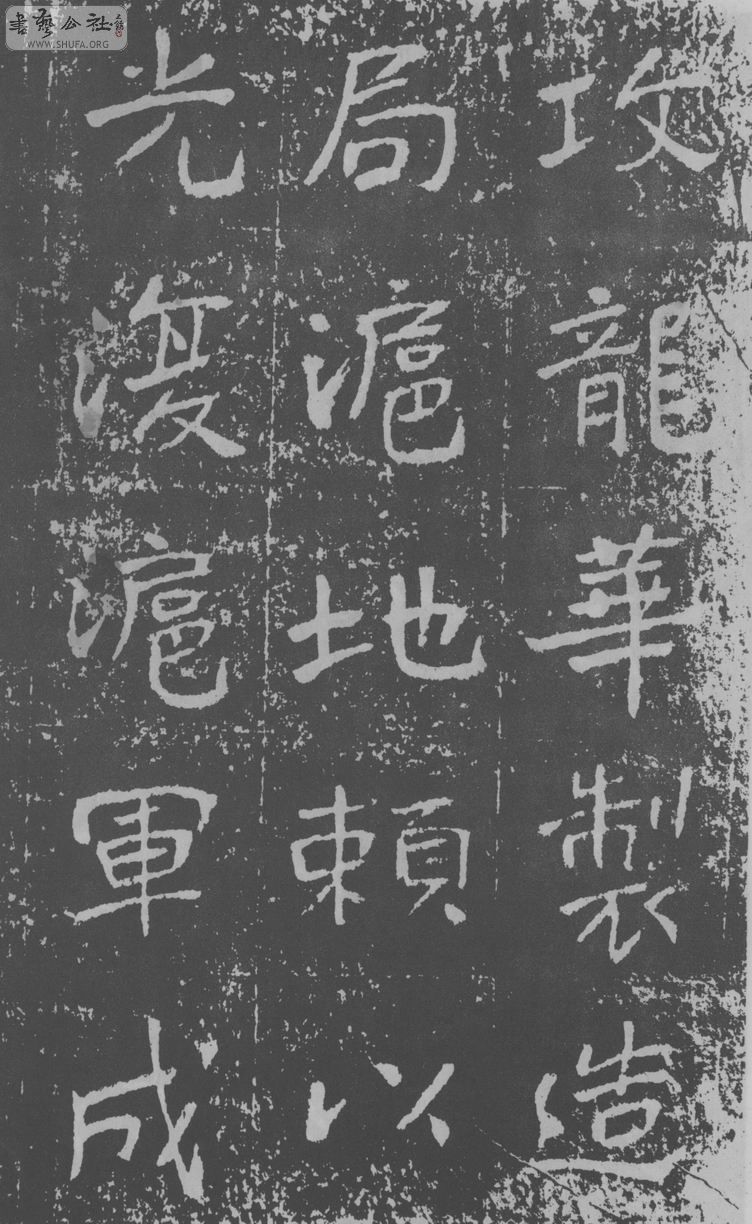 書藝公社
WWW.SHUFA.ORG
攻龍華製造
局滬地賴以
光復滬軍成